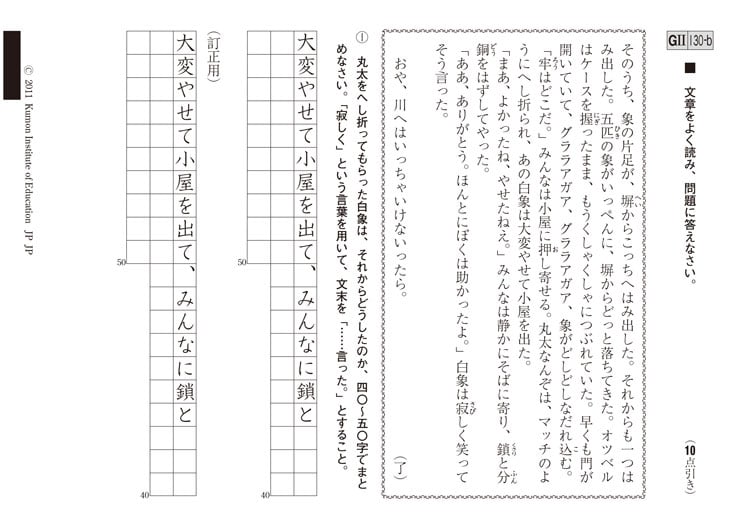 GⅡ 130-b
■ 文章をよく読み、問題に答えなさい。
（10点引き）
そのうち、象の片足が、塀からこっちへはみ出した。それからも一つは
み出した。五匹の象がいっぺんに、塀からどっと落ちてきた。オツベル
はケースを握ったまま、もうくしゃくしゃにつぶれていた。早くも門が
開いていて、グララアガア、グララアガア、象がどしどしなだれ込む。
「牢はどこだ。」みんなは小屋に押し寄せる。丸太なんぞは、マッチのよ
うにへし折られ、あの白象は大変やせて小屋を出た。
「まあ、よかったね、やせたねえ。」みんなは静かにそばに寄り、鎖と分
銅をはずしてやった。
「ああ、ありがとう。ほんとにぼくは助かったよ。」白象は寂しく笑って
そう言った。
おや、川へはいっちゃいけないったら。
（了）
① 丸太をへし折ってもらった白象は、それからどうしたのか、四〇～五〇字でまと
めなさい。「寂しく」という言葉を用いて、文末を「……言った。」とすること。
大変やせて小屋を出て、みんなに鎖と
50
40
（訂正用）
大変やせて小屋を出て、みんなに鎖と
50
40
© 2011 Kumon Institute of Education JP JP